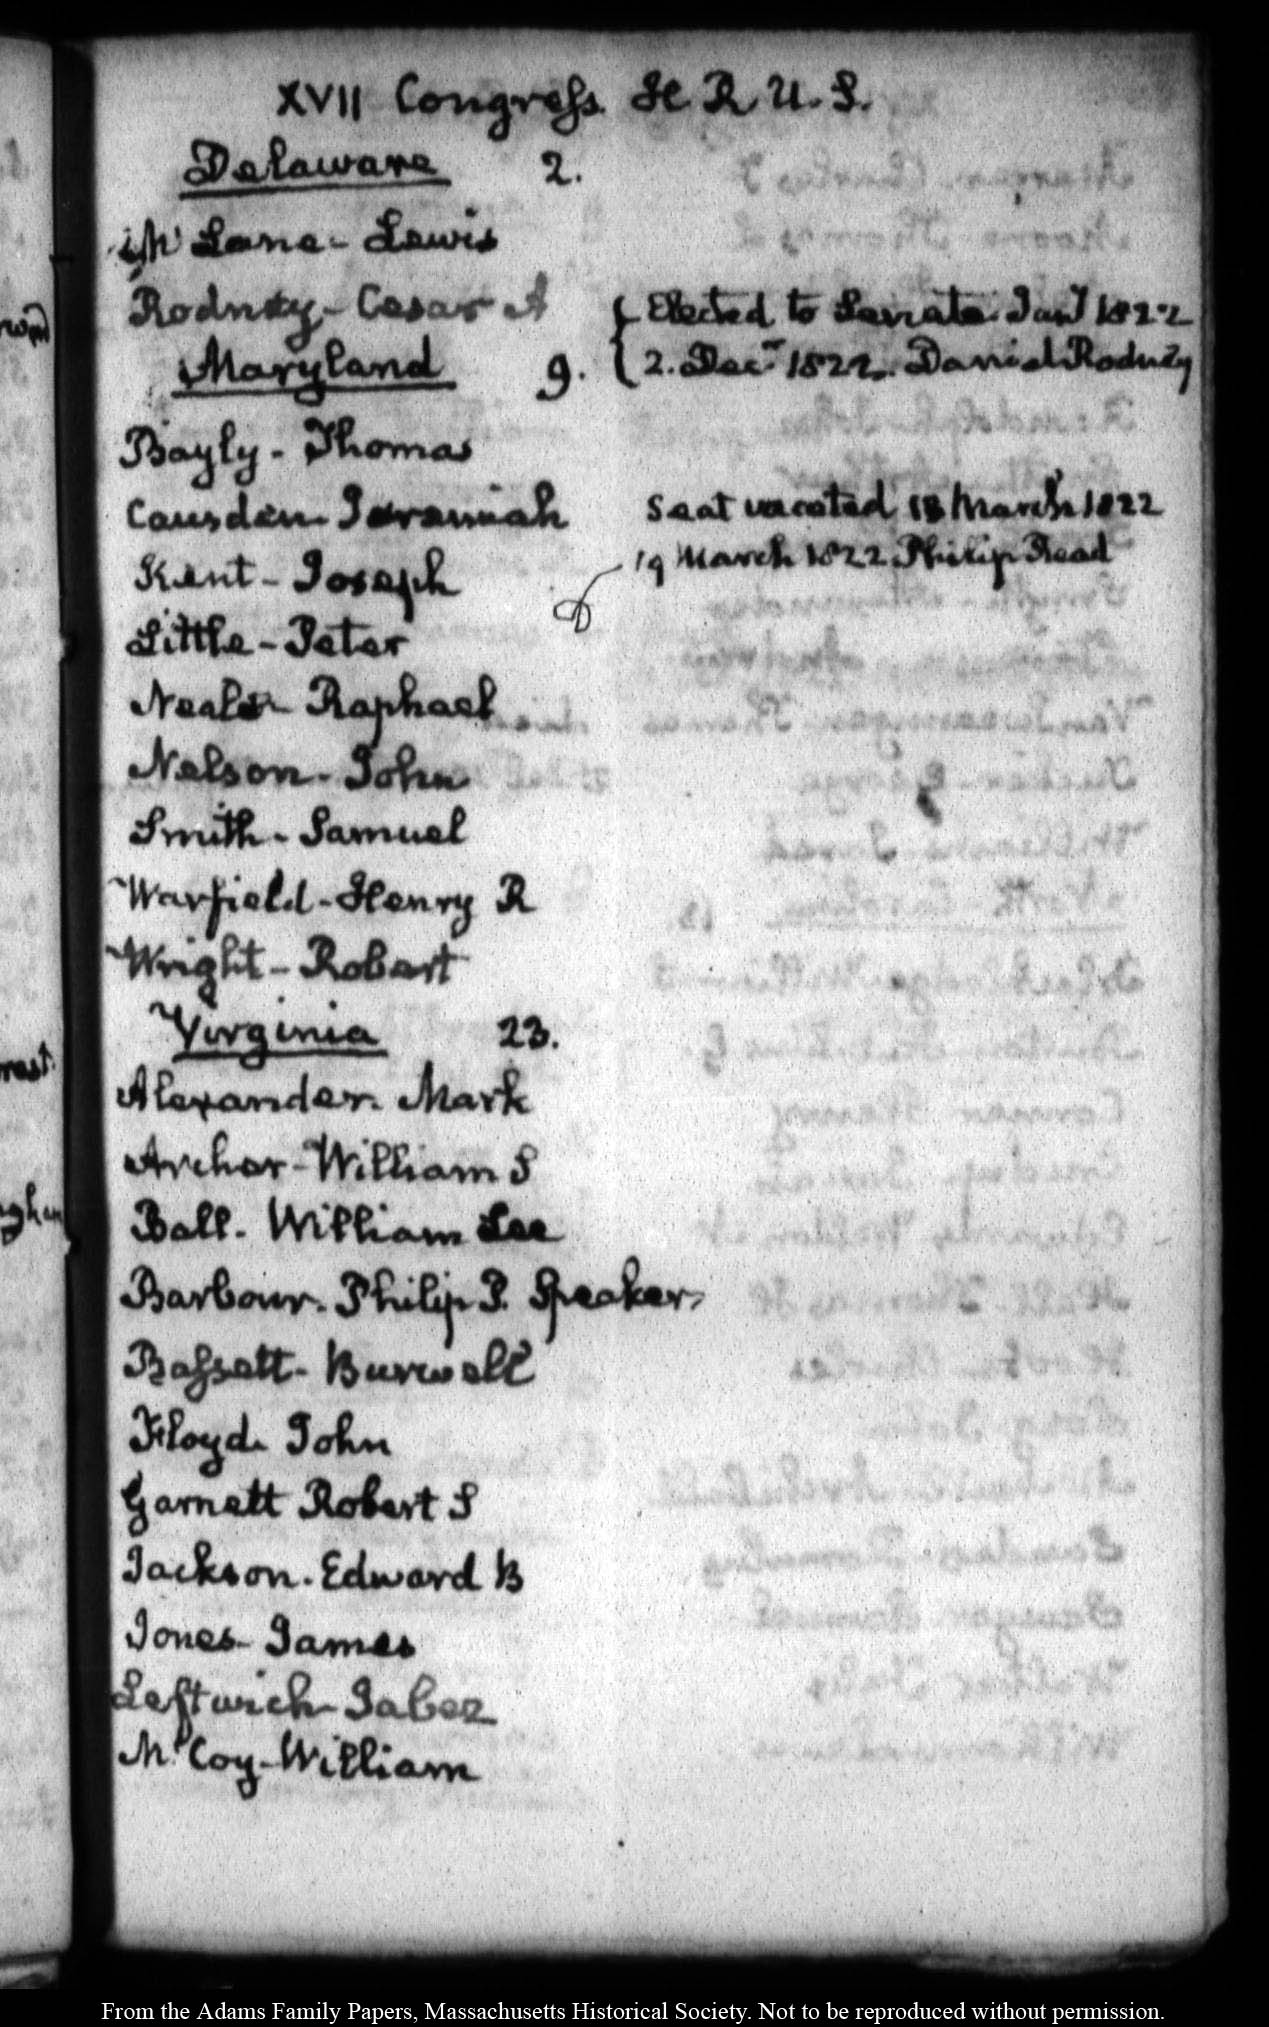 XVII Congress. H R U. S.
Delaware 2.
McLane - Lewis
Rodney - Cesar A { Elected to Senate Jany 1822
{ 2. Decr 1822. Daniel Rodney
Maryland 9.
Bayly - Thomas
Causden - Jeremiah Seat vacated 18 March 1822
19 March 1822 Philip Read
Kent - Joseph
Little - Peter
Neale - Raphael
Nelson - John
Smith - Samuel
Warfield - Henry R
Wright - Robert
Virginia 23.
Alexander - Mark
Archer - William S
Ball - William Lee
Barbour - Philip P. Speaker
Bassett - Burwell
Floyd - John
Garnett Robert S
Jackson - Edward B
Jones - James
Leftwich - Jabez
McCoy - William
From the Adams Family Papers, Massachusetts Historical Society. Not to be reproduced without permission.